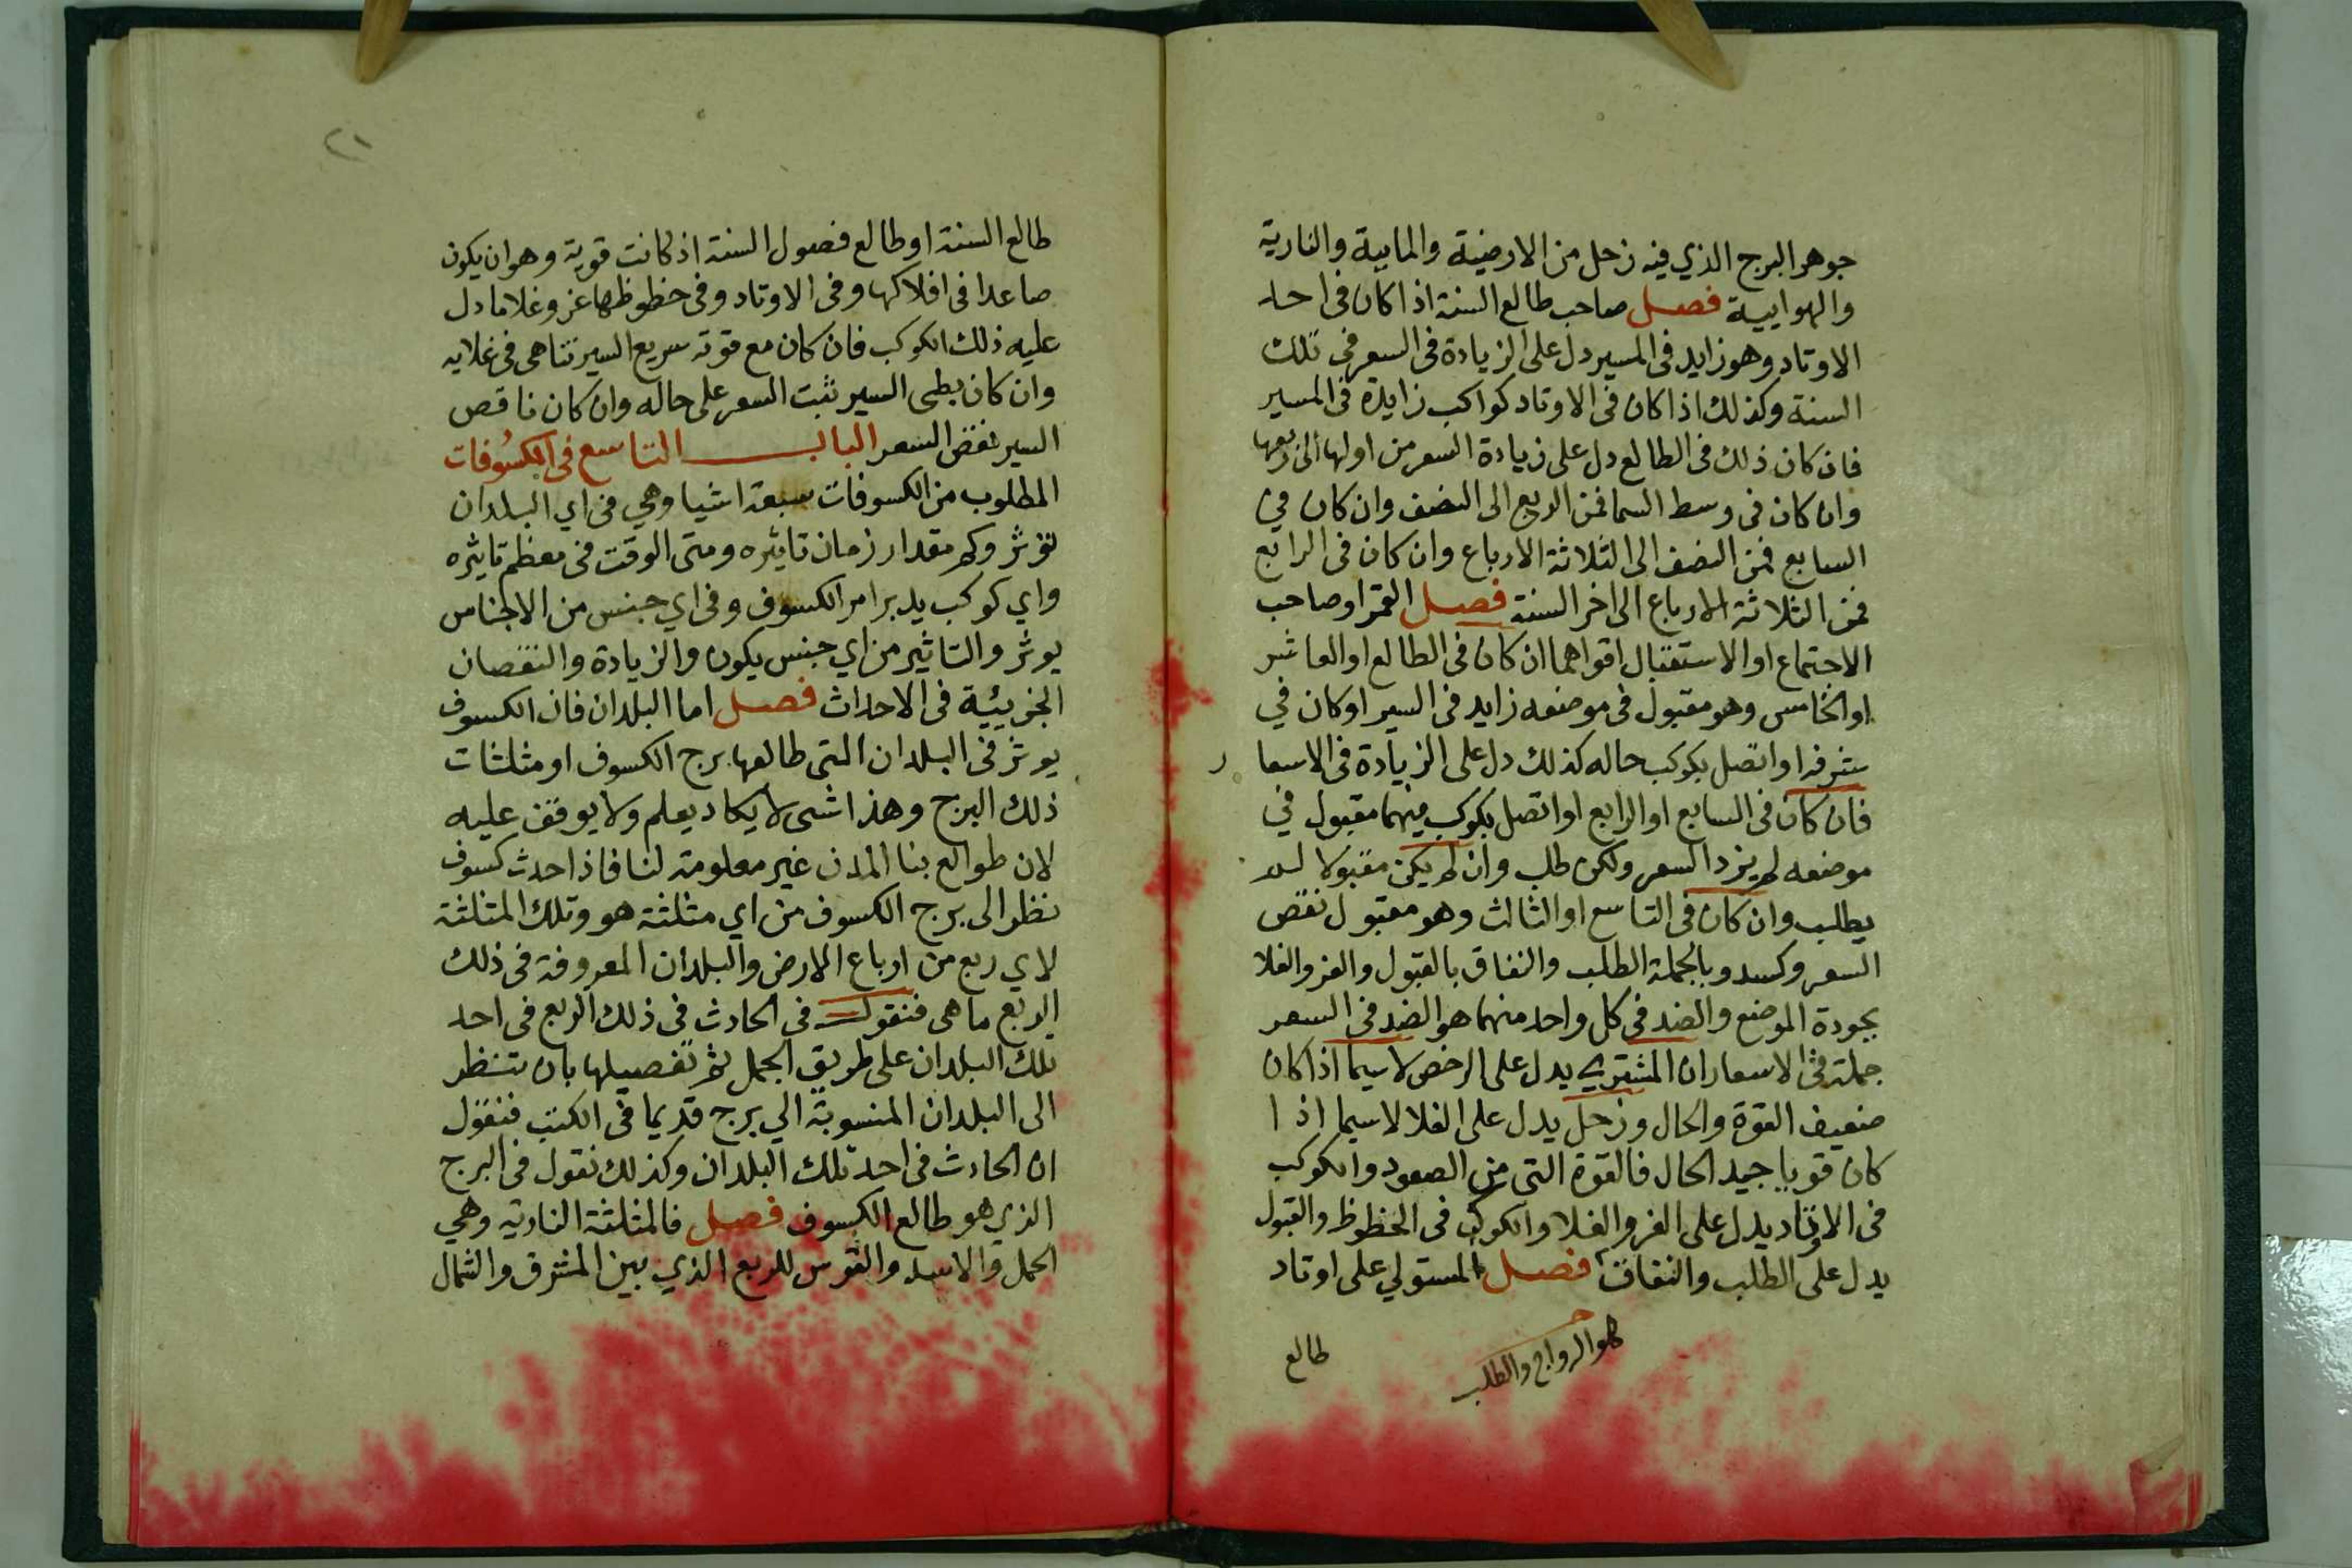 جوهر البرج الذي فيه زحل من الارضية والمايية والنارية
والهوايية فصل صاحب طالع السنة اذا كان في احد
الاوتاد وهو زايد في المسير دل على الزيادة في السعر في تلك
السنة وكذلك اذا كان في الاوتاد كواكب زايدة في المسير
فان كان ذلك في الطالع دل على زيادة السعر من اولها الى ربعها
وان كان في وسط السما فمن الربع الى النصف وان كان في
السابع فمن النصف الى الثلاثة الارباع وان كان في الرابع
فمن الثلاثة الارباع الى اخر السنة فصل القمر او صاحب
الاجتماع او الاستقبال اقواهما ان كان في الطالع او العاشر
او الخامس وهو مقبول في موضعه زايد في السير او كان في
شرفه او اتصل بكوكب حاله كذلك دل على الزيادة في الاسعار
فان كان في السابع او الرابع او اتصل بكوكب فيهما مقبول في
موضعه لم يزد السعر ولكن طلب وان لم يكن مقبولا لم
يطلب وان كان في التاسع او الثالث وهو مقبول نقص
السعر وكسد وبالجملة الطلب والنفاق بالقبول والعز والغلا
بجودة الموضع والضد في كل واحد منهما هو الضد في السعر
جملة في الاسعار ان المشتري يدل على الرخص لا سيما اذا كان
ضعيف القوة والحال وزحل يدل على الغلا لا سيما اذا
كان قويا جيد الحال فالقوة التي من الصعود والكوكب
في الاوتاد يدل على العز والغلا والكوكب في الحظوظ والقبول
يدل على الطلب والنفاق فصل المستولي على اوتاد
هو الرواج والطلب
طالع
٢١
طالع السنة او طالع فصول السنة اذ كانت قوية وهو ان يكون
صاعدا في افلاكها وفي الاوتاد وفي حظوظها عز وغلا ما دل
عليه ذلك الكوكب فان كان مع قوته سريع السير تناهى في غلايه
وان كان بطى السير ثبت السعر على حاله وان كان ناقص
السير نقض السعر الباب التاسع في الكسوفات
المطلوب من الكسوفات سبعة اشيا وهي في اي البلدان
تؤثر وكم مقدار زمان تاثيره ومتى الوقت في معظم تاثيره
واي كوكب يدبر امر الكسوف وفي اي جنس من الاجناس
يوثر والتاثير من اي جنس يكون والزيادة والنقصان
الجزييئة في الاحداث فصل اما البلدان فان الكسوف
يوثر في البلدان التي طالعها برج الكسوف او مثلثات
ذلك البرج وهذا شى لا يكاد يعلم ولا يوقف عليه
لان طوالع بنا المدن غير معلومة لنا فاذا حدث كسوف
نظر الى برج الكسوف من اي مثلثة هو وتلك المثلثة
لاي ربع من ارباع الارض والبلدان المعروفة في ذلك
الربع ما هي فنقول في الحادث في ذلك الربع في احد
تلك البلدان على طريق الجمل ثم تفصيلها بان تنظر
الى البلدان المنسوبة الي برج قديما في الكتب فنقول
ان الحادث في احد تلك البلدان وكذلك نقول في البرج
الذي هو طالع الكسوف فصل فالمثلثة النارية وهي
الحمل والاسد والقوس للربع الذي بين المشرق والشمال